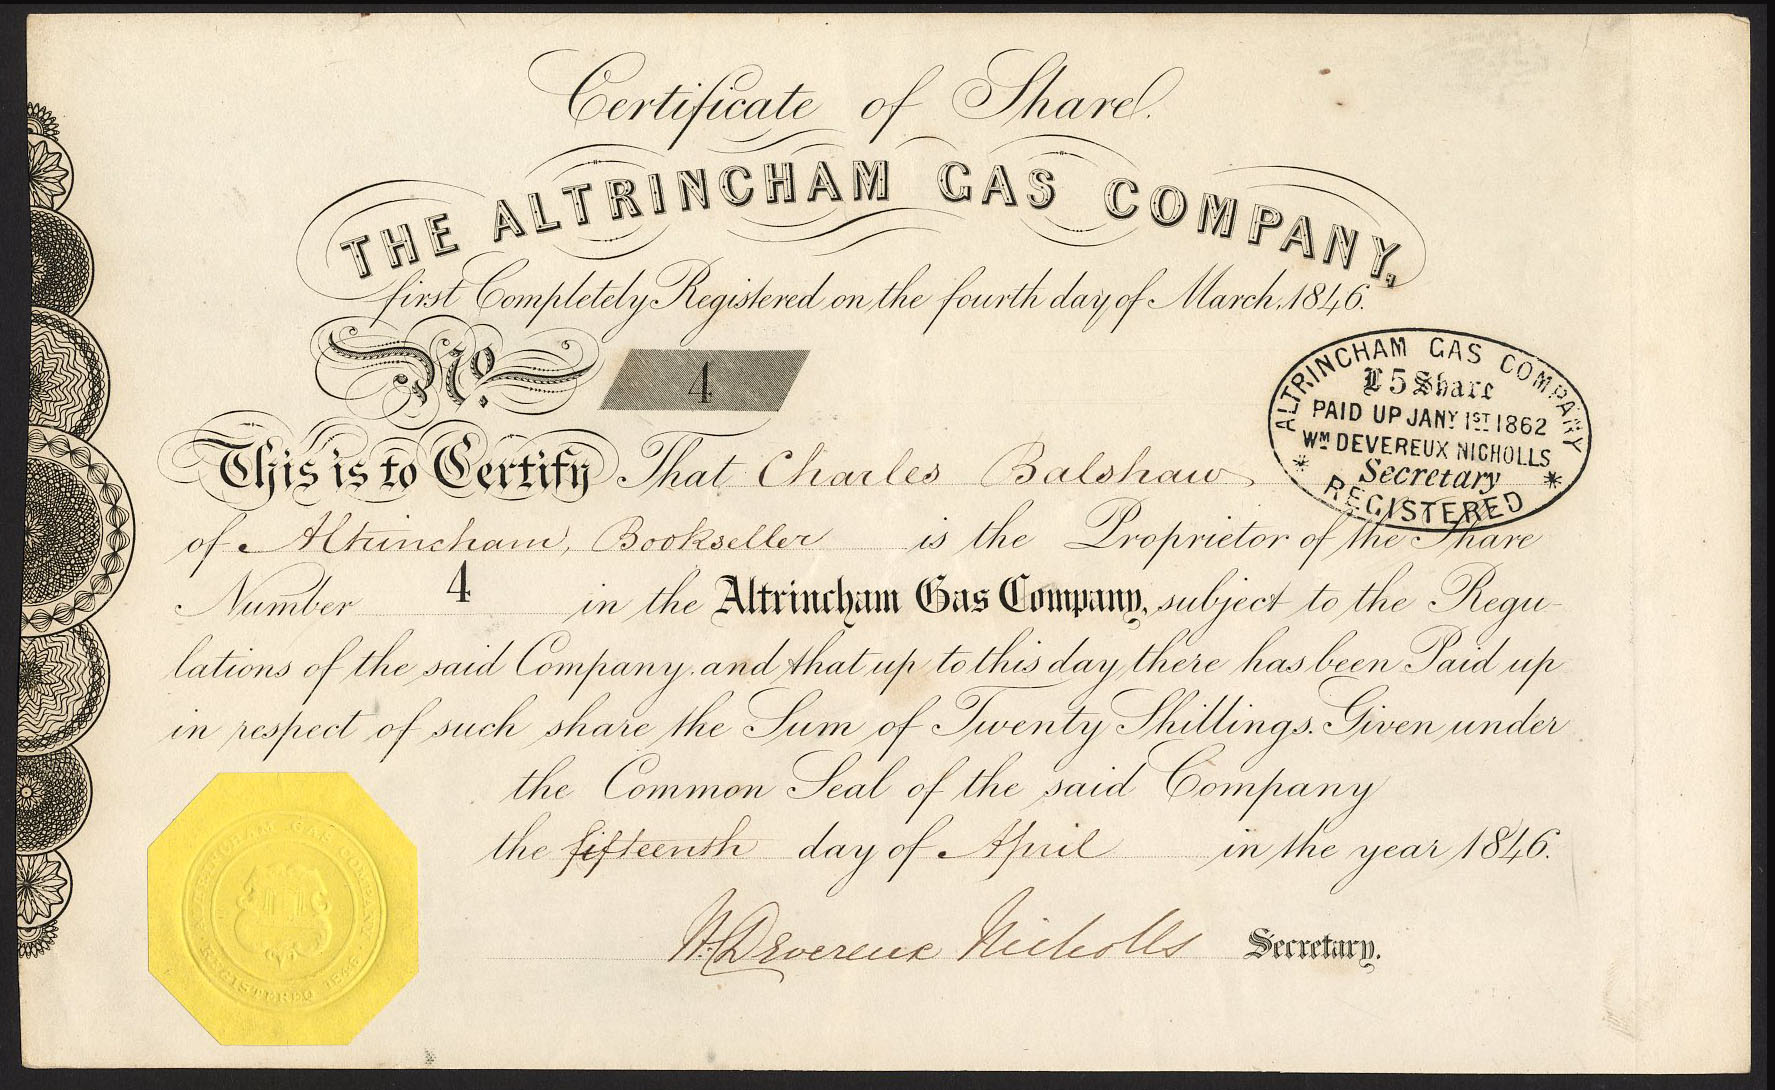 Certificate of Share.
THE ALTRINCHAM GAS COMPANY,
first Completely Registered on the fourth day of March, 1846.
No. 4
ALTRINCHAM GAS COMPANY
£5 Share
PAID UP JANY 1ST 1862
WM DEVEREUX NICHOLLS
Secretary
* REGISTERED *
This is to Certify That Charles Balshaw
of Altrincham, Bookseller is the Proprietor of the Share
Number 4 in the Altrincham Gas Company, subject to the Regu-
lations of the said Company, and that up to this day there has been Paid up
in respect of such share the Sum of Twenty Shillings. Given under
the Common Seal of the said Company
the fifteenth day of April in the year 1846.
W. Devereux Nicholls Secretary.
ALTRINCHAM GAS COMPANY
REGISTERED 1846